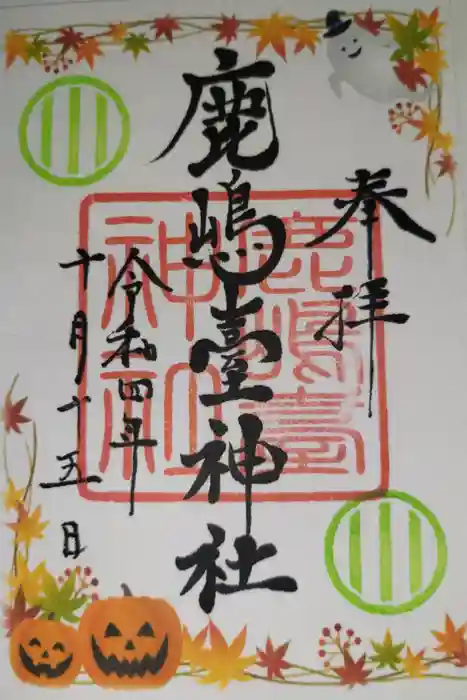 奉拝
鹿嶋臺神社
令和四年
十月十五日
鹿嶋臺
神社